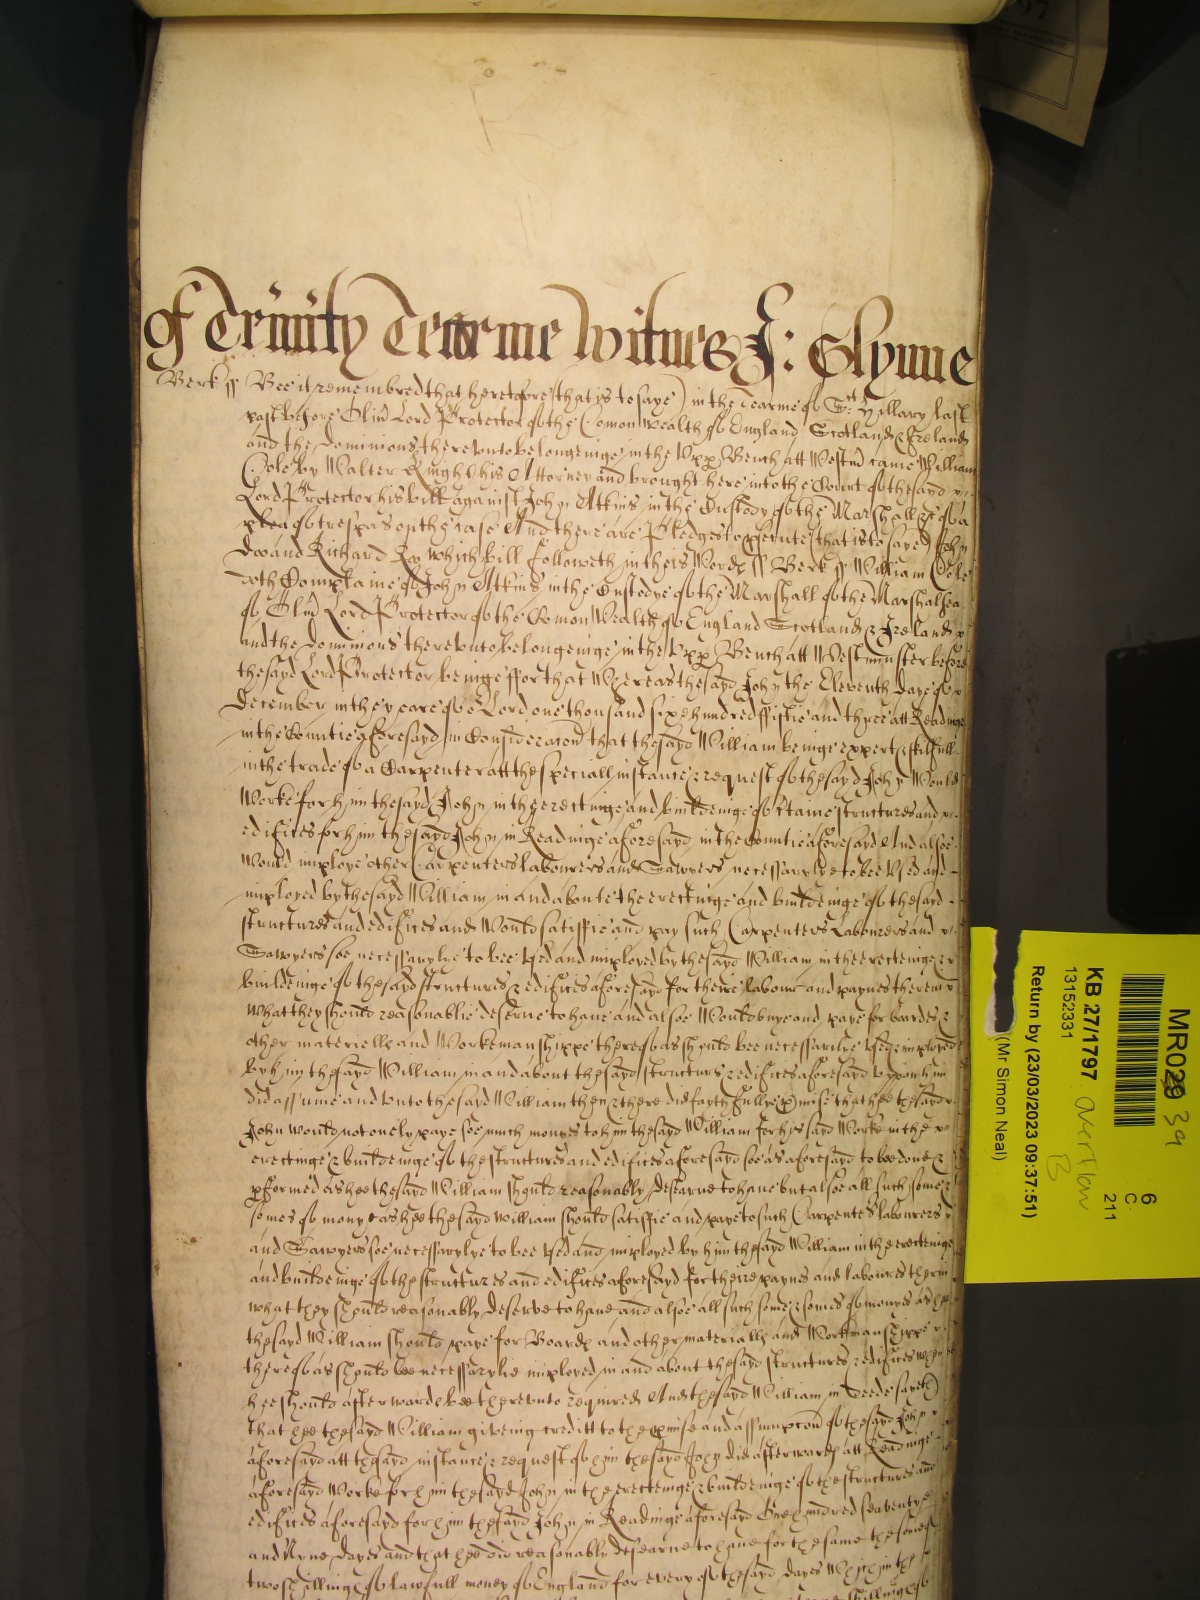 of Trinity Tearme Witnes J: Glynne
Berk ss Bee it remembred that heretofore (that is to saye) in the Tearme of St. Hillary last
past before Oliver Lord Protector of the Comon Wealth of England Scotland & Ireland
and the Dominions thereunto belongeinge in the Upp Bench att Westm came William
Cole by Walter his Attorney and brought here into the Court of the sayd
Lord Protector his bill against John Atkins in the Custody of the Marshall &c of a
plea of trespas on the case And there are Pledges to psecute (that is to saye) John
Doo and Richard Roo which bill followeth in theis Words ss Berk ss William Cole
doth Complaine of John Atkins in the Custodye of the Marshall of the Marshalsea
of Oliver Lord Protector of the Comon Wealth of England Scotland & Ireland
and the Dominions thereunto belongeinge in the Upp Bench att Westminster before
the sayd Lord Protector beinge ffor that Whereas the sayd John the Eleventh Daye of
December in the yeare of or Lord one thousand sixe hundred ffiftie and three att Readinge
in the Countie aforesayd in Consideracon that the sayd William beinge expert & skilfull
in the trade of a Carpenter att the speciall instance & request of the sayd John Would
Worke for him the sayd John in the erectinge and buildeinge of Ctaine structures and
edifices for him the sayd John in Readinge aforesayd in the Countie aforesayd And alsoe
Would imploye other Carpenters labourers and Sawyers necessarylye to bee Used and
imployed by the sayd William in and aboute the erectinge and buildeinge of the sayd
structures and edifices and Would satisfie and pay such Carpenters Labourers and
Sawyers soe necessarylye to bee Used and imployed by the sayd William in the erecteinge &
buildeinge of the sayd structures & edifices aforesayd for theire labour and paynes therein
What they should reasonablie deserve to have and alsoe Would buye and paye for boardes &
other materialls and Workemanshippe thereof as should bee necessarilie Used & imployed
by him the sayd William in and about the sayd structures & edifices aforesayd Uppon him
did assume and Unto the sayd William then & there did faythfullye pmise that hee the sayd
John would not onely paye soe much moneys to him the sayd William for his sayd Worke in the
erectinge & buildeinge of the structures and edifices aforesayd soe as aforesayd to bee done &
pformed as hee the sayd William should reasonably deserve to have but alsoe all such some &
somes of money as hee the sayd William should satisfie and paye to such Carpenters labourers
and Sawyers soe necessarylye to bee Used and imployed by him the sayd William in the erecteinge
and buildeinge of the structures and edifices aforesayd for theire paynes and laboures therin
what they should reasonably deserve to have and alsoe all such some & somes of moneys as hee
the sayd William should paye for Boards and other materialls and Workmanshippe
thereof as should bee necessarylie imployed in and about the sayd structures & edifices when
hee should afterwards bee thereunto required And the sayd William in deede sayeth
that hee the sayd William giveing creditt to the pmise and assumpcon of the sayd John
aforesayd att the sayd instance & request of him the sayd John did afterwards att Readinge
aforesayd Worke for him the sayd John in the erecteinge & buildeinge of the structures and
edifices aforesayd for him the sayd John in Readinge aforesayd One hundred seaventye
and Nyne dayes and that hee did reasonably deserve to have for the same the somes
two shillings of lawfull money of England for every of the sayd dayes Which in the
MR029 39
6
C
211
KB 27/1797 overflow
B
13152331
Return by (23/03/2023 09:37:51)
(Mr Simon Neal)
97